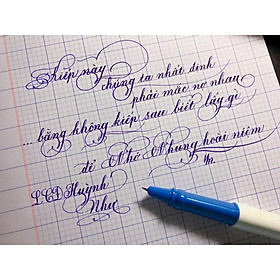 Kiếp này
chúng ta nhất định
phải mắc nợ nhau
... bằng không kiếp sau biết lấy gì
để Nhớ Nhung hoài niệm
LCD Huỳnh
Như